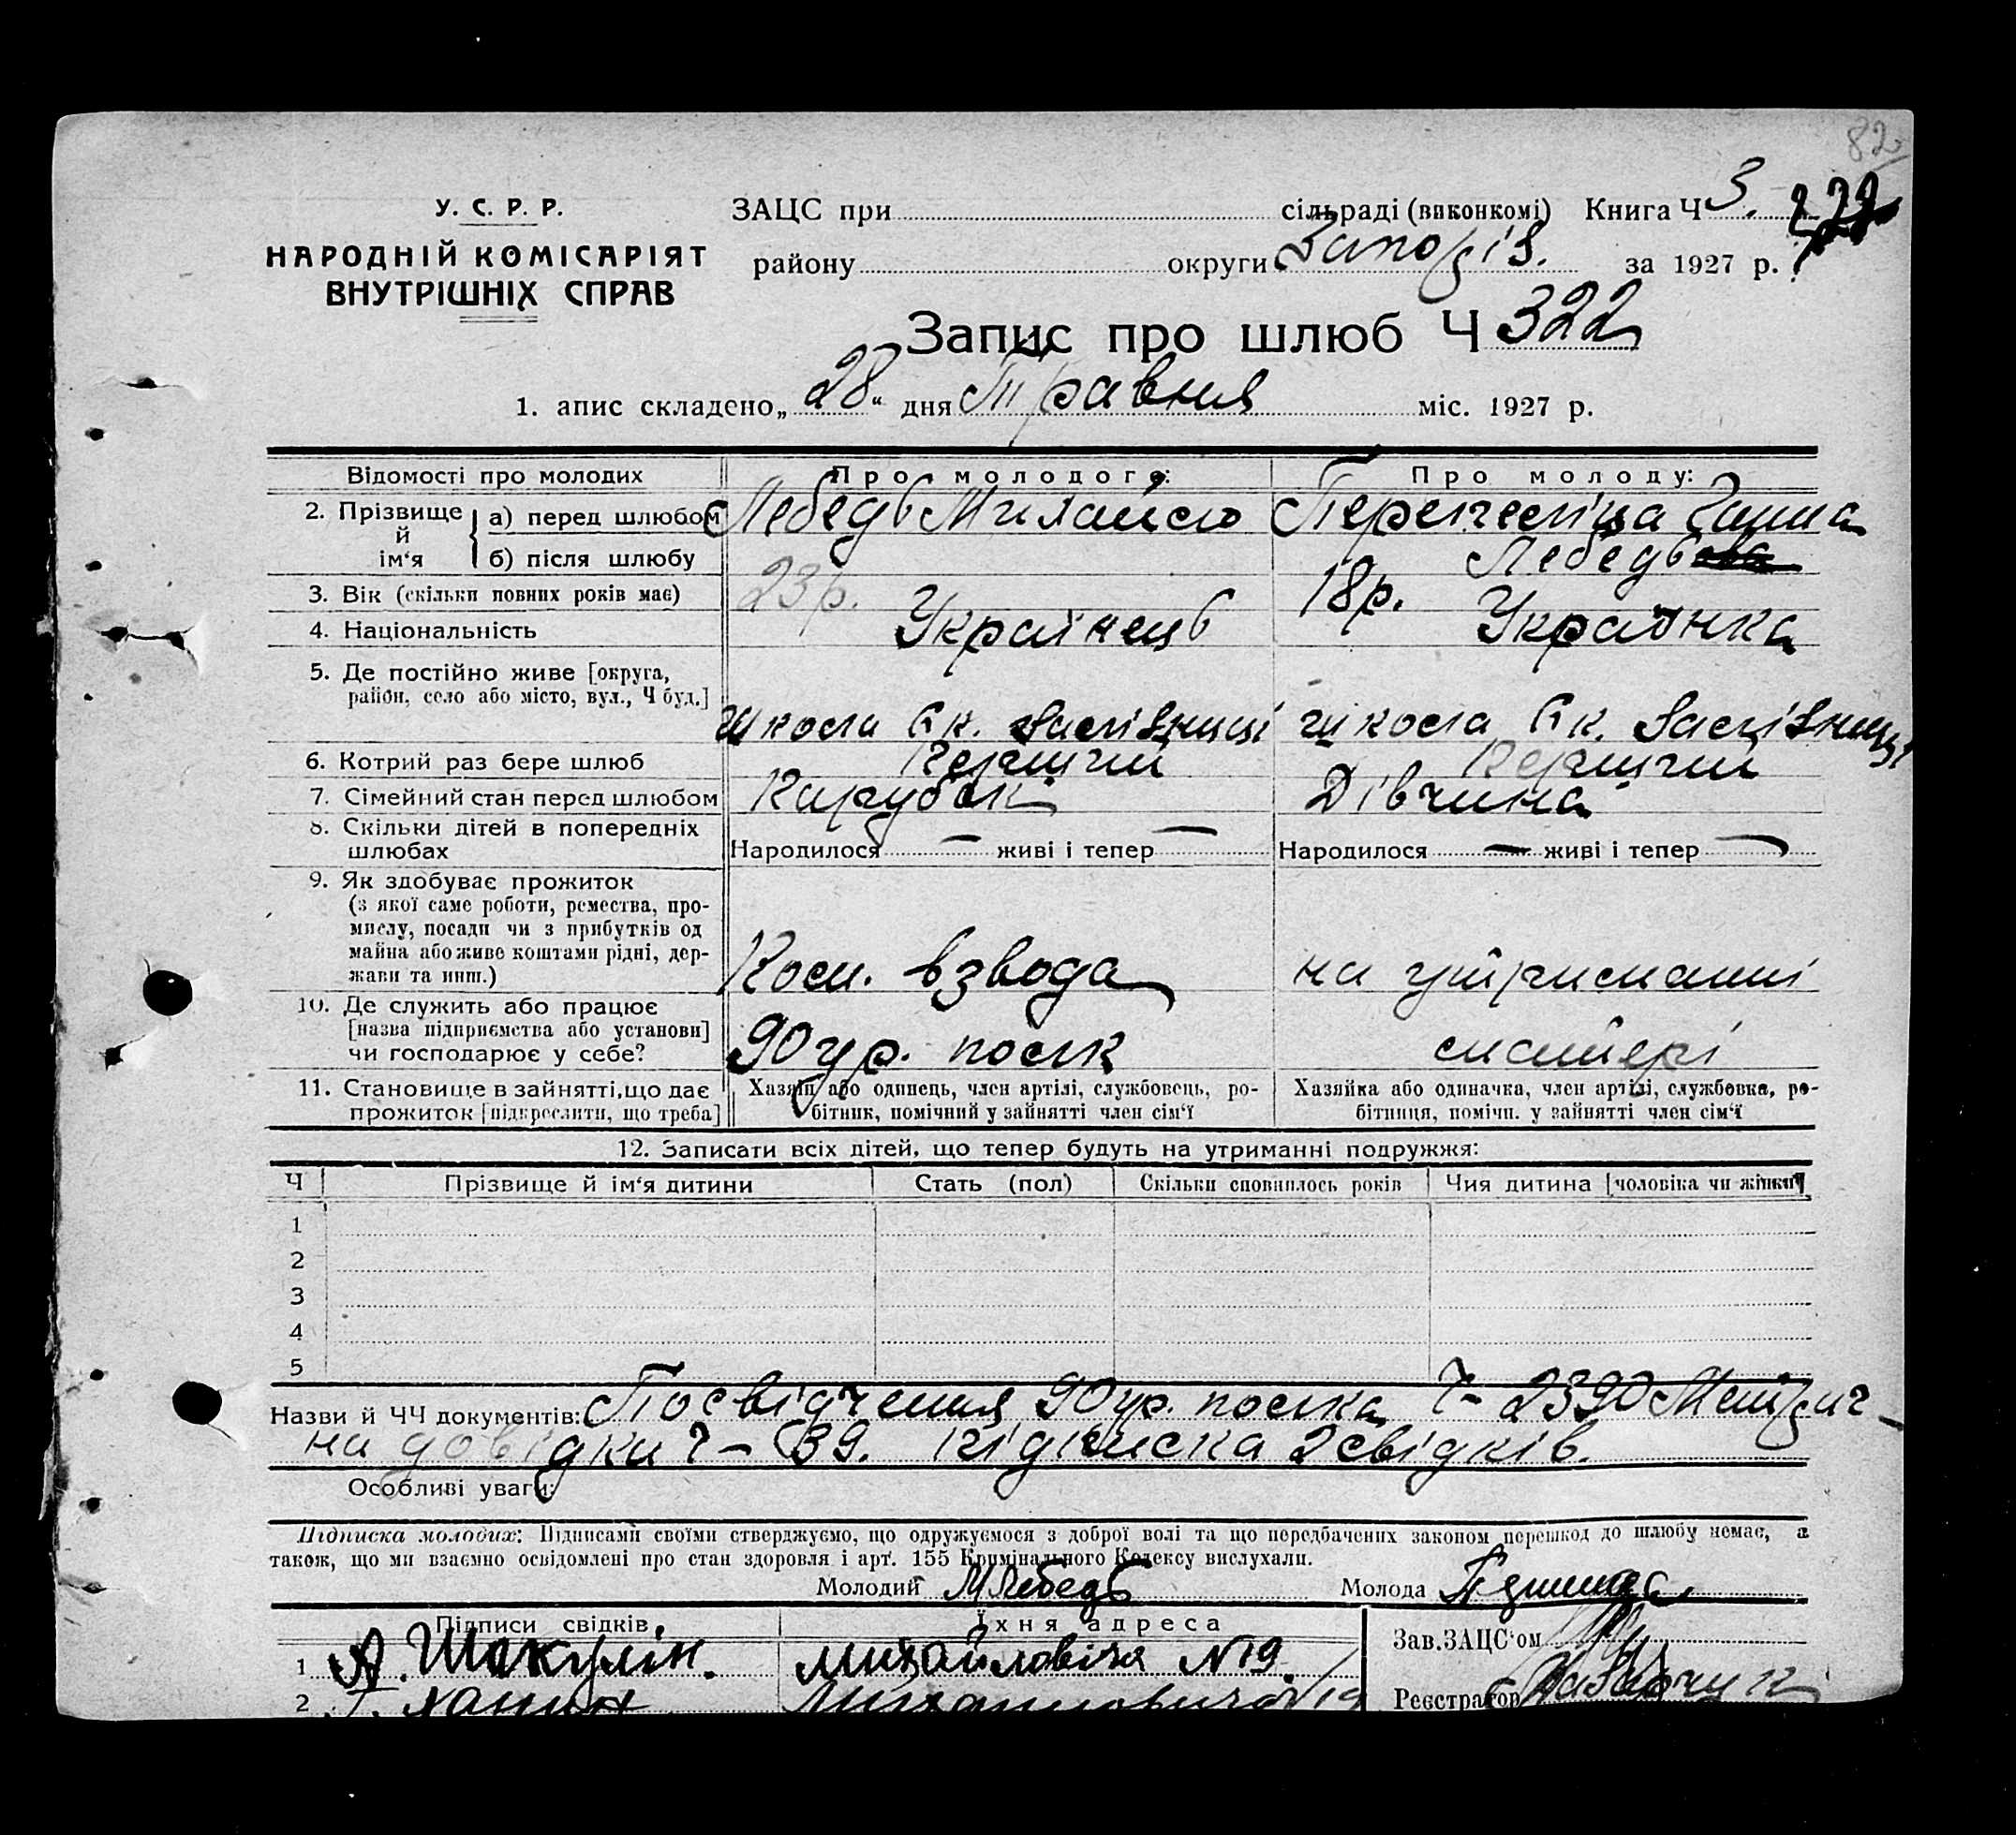 82
У. С. Р. Р.
НАРОДНІЙ КОМІСАРІЯТ
ВНУТРІШНІХ СПРАВ
ЗАЦС при сільраді (виконкомі) Книга Ч 3.
району округи Запоріз. за 1927 р.
Запис про шлюб Ч 322
1. апис складено „28“ дня Травня міс. 1927 р.
Відомості про молодих Про молодого: Про молоду:
2. Прізвище й ім‘я
а) перед шлюбом Лебедь Михайло Перепелиця Ганна
б) після шлюбу Лебедь
3. Вік (скільки повних років має) 23р. 18р.
4. Національність Українець Українка
5. Де постійно живе [округа,
район, село або місто, вул., Ч буд.]
школа Чк. школа Чк.
6. Котрий раз бере шлюб Перший Перший
7. Сімейний стан перед шлюбом Парубок Дівчина
8. Скільки дітей в попередніх
шлюбах Народилося — живі і тепер — Народилося — живі і тепер —
9. Як здобуває прожиток
(з якої саме роботи, ремества, про-
мислу, посади чи з прибутків од
майна або живе коштами рідні, дер-
жави та инш.)
Ком. взвода на утриманні
10. Де служить або працює
[назва підприємства або установи]
чи господарює у себе?
90 ур. полк матері
11. Становище в зайнятті, що дає
прожиток [підкреслити, що треба]
Хазяїн або одинець, член артілі, службовець, ро-
бітник, помічний у зайнятті член сім‘ї
Хазяйка або одиначка, член артілі, службовка, ро-
бітниця, помічн. у зайнятті член сім‘ї
12. Записати всіх дітей, що тепер будуть на утриманні подружжя:
Ч Прізвище й ім‘я дитини Стать (пол) Скільки сповнилось років Чия дитина [чоловіка чи жінки]
1
2
3
4
5
Назви й ЧЧ документів: Посвідчення 90 ур. полка Ч- 2390 Медич-
на довідки Ч- 39. підписка 2 свідків.
Особливі уваги:
Підписка молодих: Підписами своїми стверджуємо, що одружуємося з доброї волі та що передбачених законом перешкод до шлюбу немає, а
також, що ми взаємно освідомлені про стан здоровля і арт. 155 Кримінального Кодексу вислухали.
Молодий МЛебедь Молода
Підписи свідків Їхня адреса
1 А. Шакулін. Михайловіча N 19.
2 Г. Ханин Михайловича N 19
Зав. ЗАЦС‘ом
Реєстратор